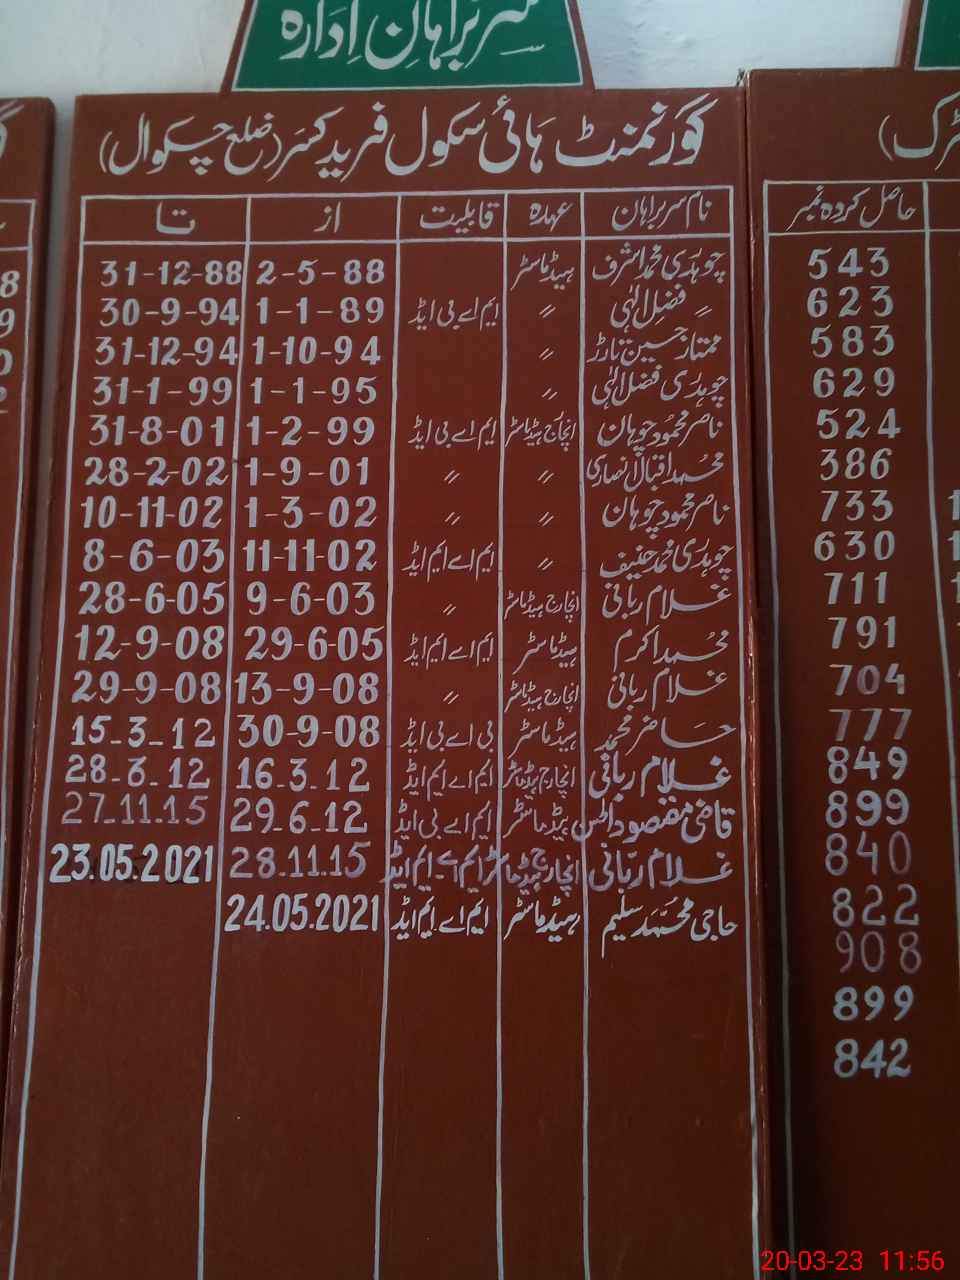 سربراہانِ اِدارہ
گورنمنٹ ہائی سکول فرید کسر (ضلع چکوال)
نام سربراہان عہدہ قابلیت از تا
چوہدری محمد اشرف ہیڈماسٹر 2-5-88 31-12-88
〃 فضل الٰہی 〃 ایم اے بی ایڈ 1-1-89 30-9-94
ممتاز حسین تارڑ 〃 1-10-94 31-12-94
چوہدری فضل الٰہی 〃 1-1-95 31-1-99
ناصر محمود چوہان انچارج ہیڈماسٹر ایم اے بی ایڈ 1-2-99 31-8-01
محمد اقبال انصاری 〃 〃 1-9-01 28-2-02
ناصر محمود چوہان 〃 〃 1-3-02 10-11-02
چوہدری محمد حنیف 〃 ایم اے ایم ایڈ 11-11-02 8-6-03
غلام ربانی انچارج ہیڈماسٹر 〃 9-6-03 28-6-05
محمد اکرم ہیڈماسٹر ایم اے ایم ایڈ 29-6-05 12-9-08
غلام ربانی انچارج ہیڈماسٹر 〃 13-9-08 29-9-08
حاضر محمد ہیڈماسٹر بی اے بی ایڈ 30-9-08 15-3-12
غلام ربانی انچارج ہیڈماسٹر ایم اے ایم ایڈ 16-3-12 28-6-12
قاضی مقصود الحسن ہیڈماسٹر ایم اے بی ایڈ 29-6-12 27.11.15
غلام ربّانی انچارج ہیڈماسٹر ایم اے ایم ایڈ 28.11.15 23.05.2021
حاجی محمد سلیم ہیڈماسٹر ایم اے ایم ایڈ 24.05.2021
حاصل کردہ نمبر
543
623
583
629
524
386
733
630
711
791
704
777
849
899
840
822
908
899
842
20-03-23 11:56